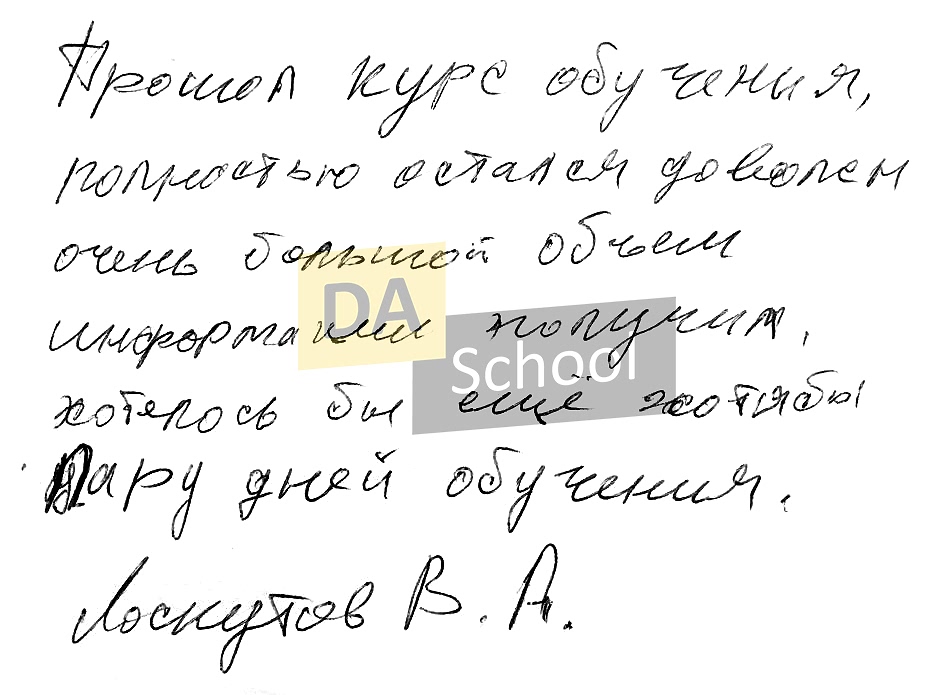 Прошол курс обучения,
полностью остался доволен
очень большой объем
DA
информации получил,
School
хотелось бы ещё хотябы
Пару дней обучения.
Лоскутов В. А.